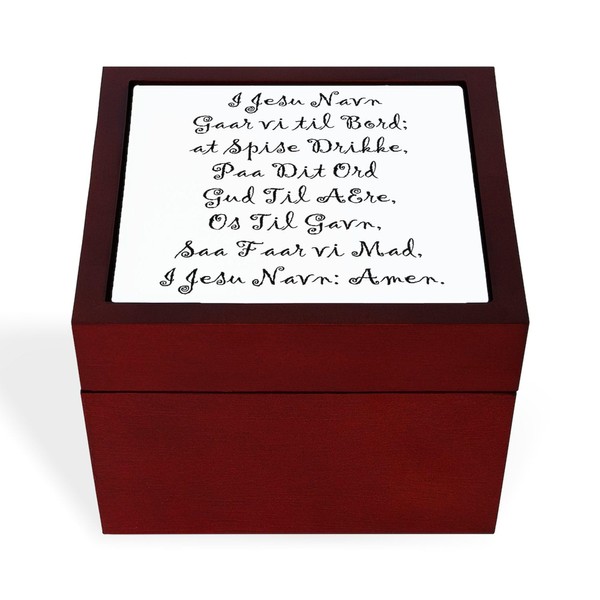 I Jesu Navn
Gaar vi til Bord;
at Spise Drikke,
Paa Dit Ord
Gud Til AEre,
Os Til Gavn,
Saa Faar vi Mad,
I Jesu Navn: Amen.